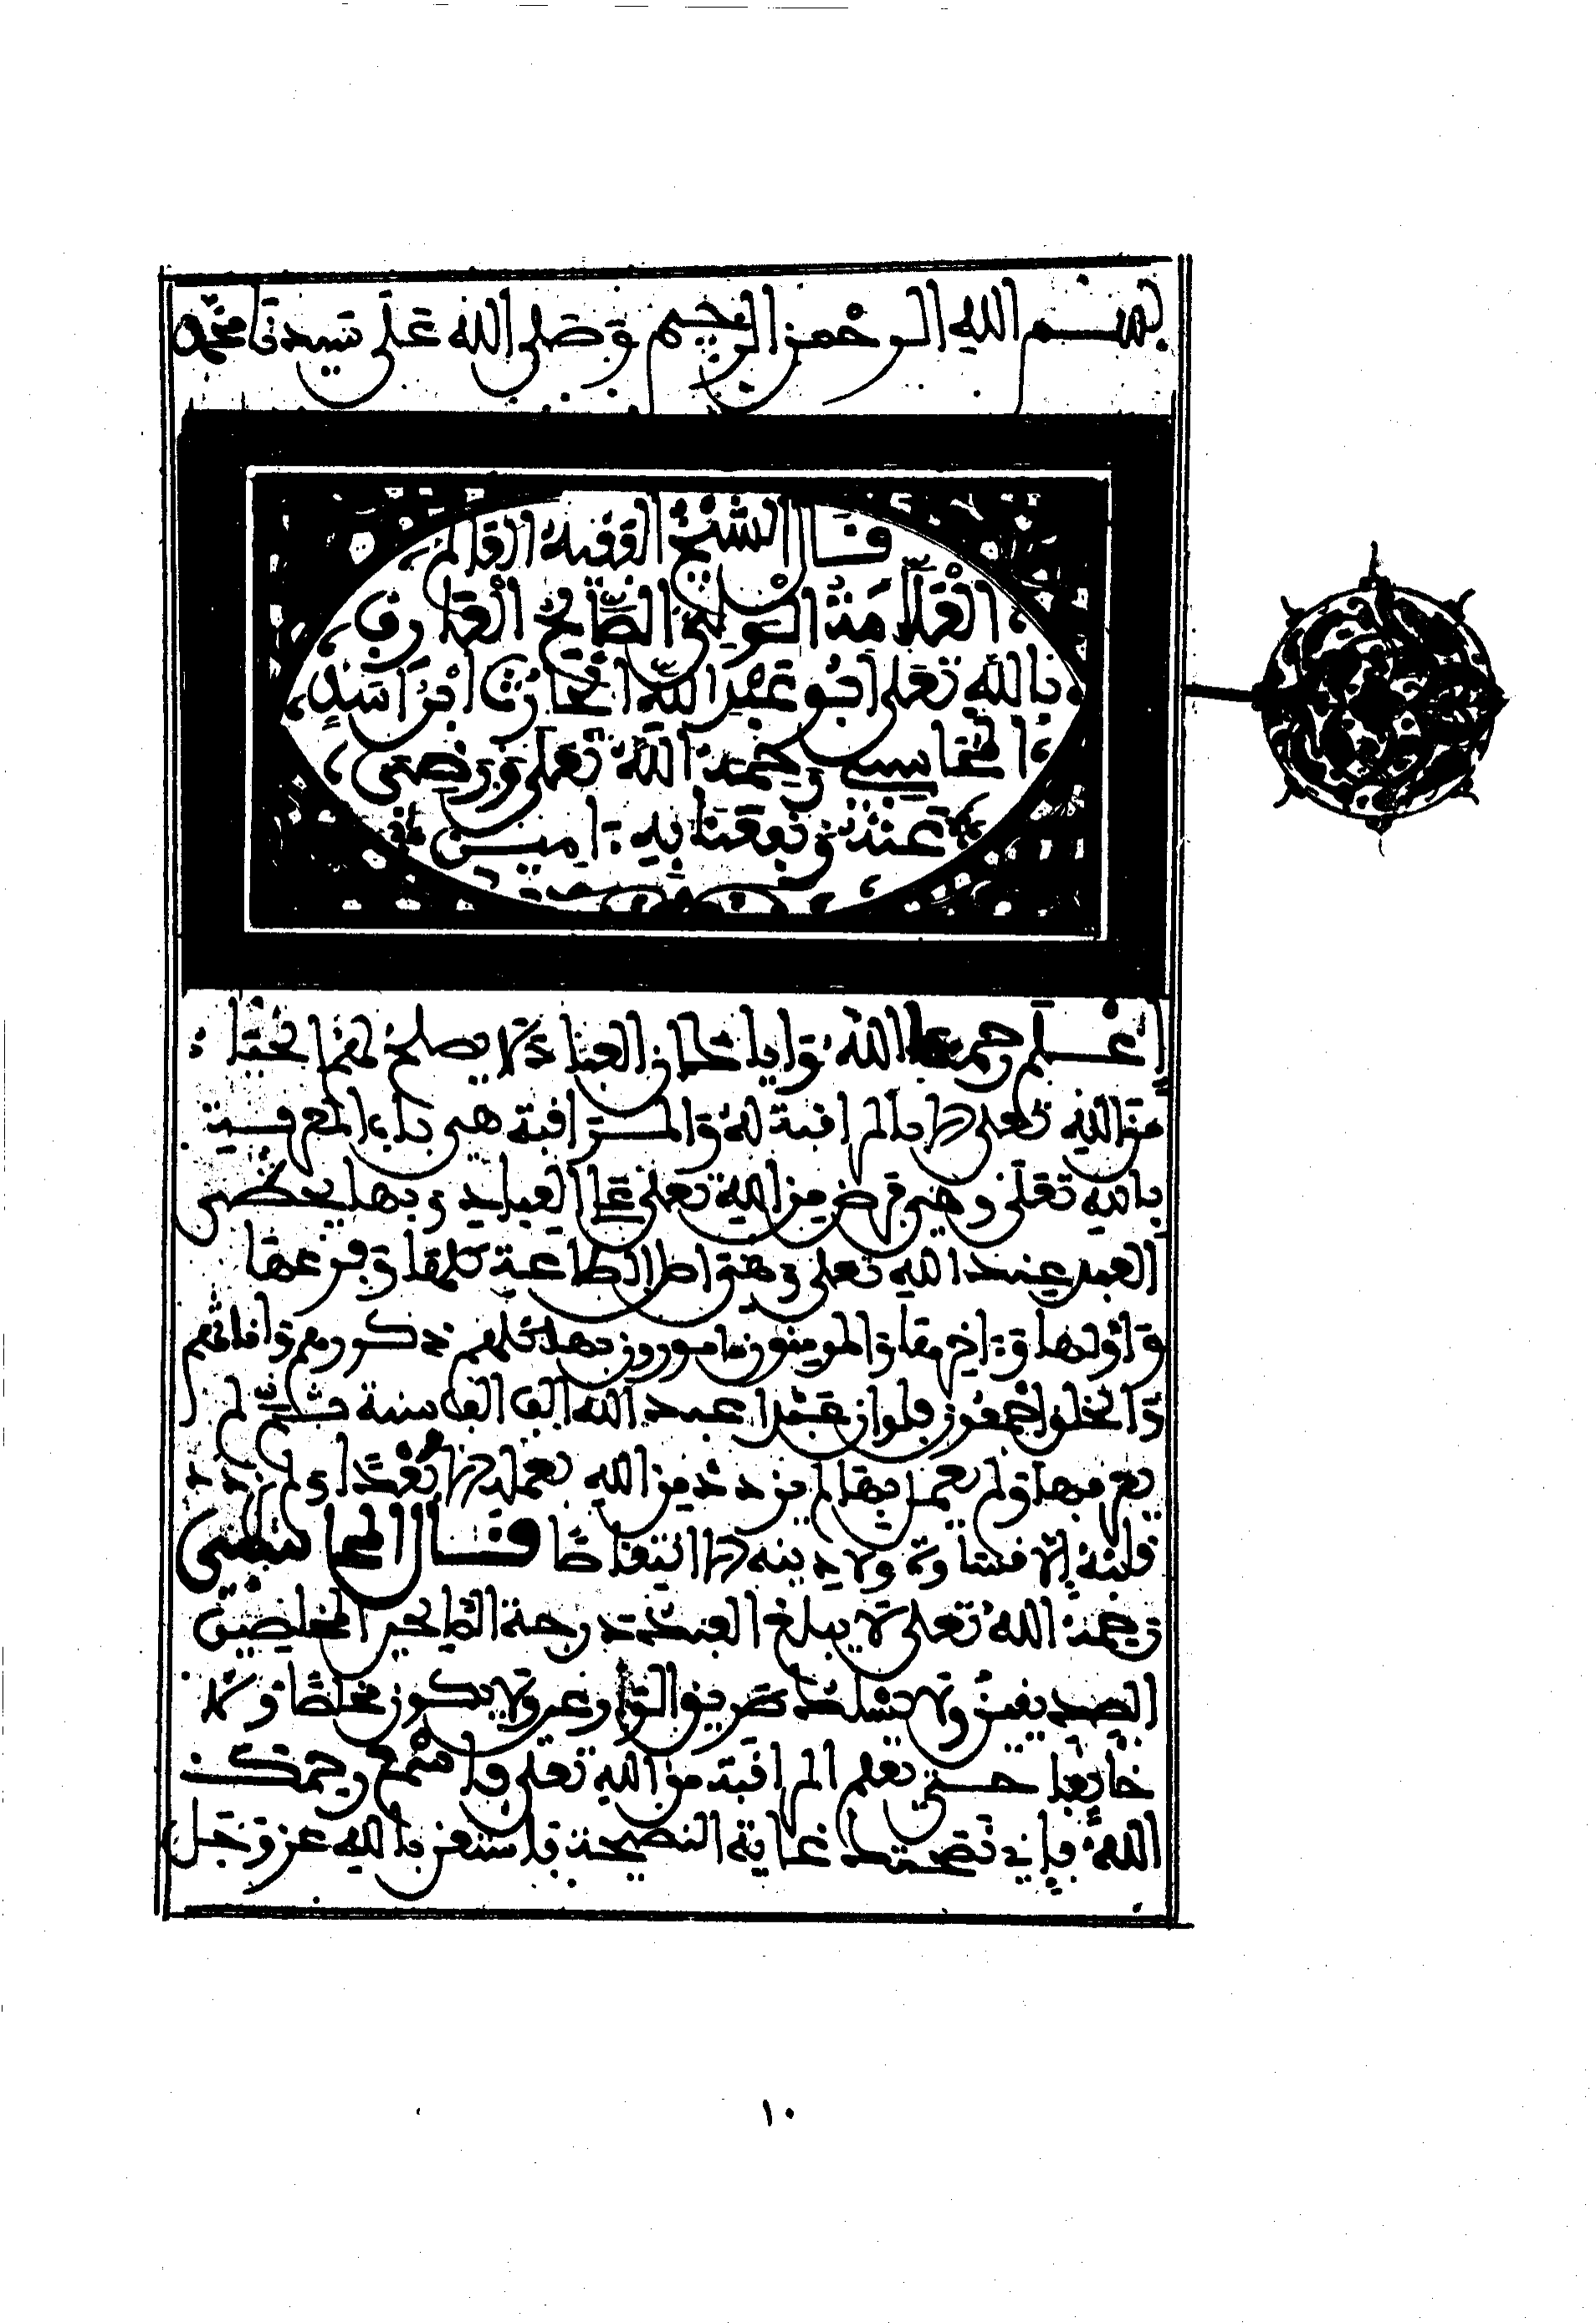 بسم الله الرحمن الرحيم وصلى الله على سيدنا محمد
قال الشيخ الفقيه العالم
العلامة الولي الصالح العارف
بالله تعلى أبو عبد الله الحارث ابن اسد
المحاسبي رحمه الله تعلى ورضي
عنه ونفعنا به ءامين
اعلم رحمنا الله وايا ان العباد لا يصلح لهم
من الله تعلى الا بالمرافبة له والمرافبة هي باب المعرفة
بالله تعلى وهي فرض من الله تعلى على العباد وبها يحضى
العبد عند الله تعلى وهو اصل الطاعة كلها وفرعها
واولها وءاخرها والمومنون مامورون بها كلهم ذكورهم واناثهم
فلو ان عبدا عبد الله الف الف سنة ثم لم
يعرفها ولم يعمل بها لم يزدد من الله بعمله الا بعدا ولم يزدد
فلبه الا فساوة ولا دينه الا انتفاصا فال المحاسبي
رحمه الله تعلى لا يبلغ العبد درجة الصالحين المخلصين
الصديفين ولا يسلك طريق ولا يكون مخلصا ولا
خايفا حتى تعلم المرافبة من الله تعلى واسمع رحمك
الله فإني نصحتك غاية النصيحة فاستعن بالله عز وجل
١٠